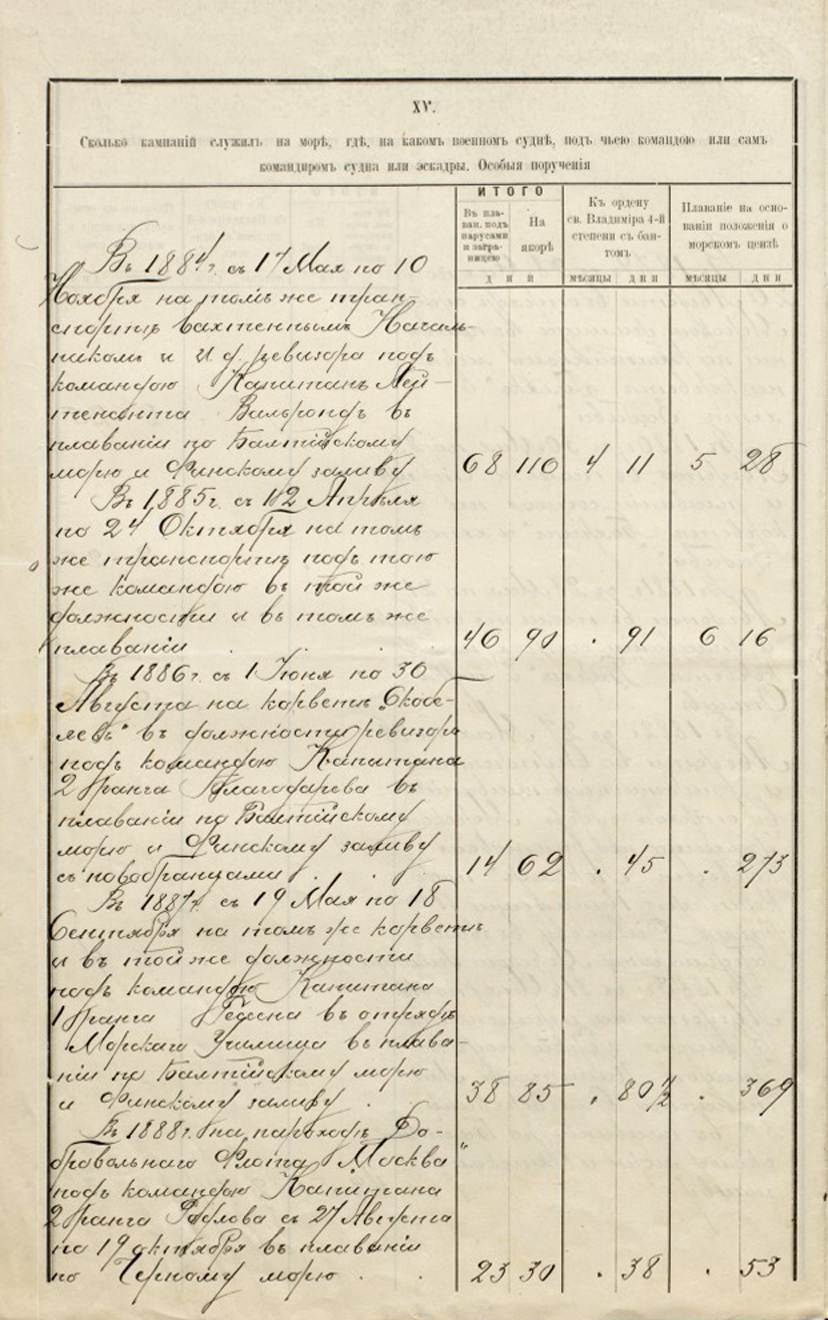 XV.
Сколько кампаній служилъ на морѣ, гдѣ, на какомъ военномъ суднѣ, подъ чьею командою или самъ
командиромъ судна или эскадры. Особыя порученія
ИТОГО
Въ плаван. подъ парусами и заграницею
На якорѣ
Къ ордену св. Владиміра 4-й степени съ бантомъ
Плаваніе на основаніи положенія о морскомъ цензѣ
дній
мѣсяцы дни
мѣсяцы дни
Въ 1884 г. съ 17 Мая по 10
Ноября на томъ же тран
спортѣ вахтеннымъ Началь-
никомъ и И. д. ревизора подъ
командою Капитанъ Лей-
тенанта Вальрондъ въ
плаваніи по Балтійскому
морю и Финскому заливу 68 110 4 11 5 28
Въ 1885 г. съ 12 Апрѣля
по 24 Октября на томъ
же транспортѣ подъ тою
же командою въ той же
должности и въ томъ же
плаваніи . . . 46 90 . 91 6 16
Въ 1886 г. съ 1 Іюня по 30
Августа на корветѣ „Скобе-
левъ" въ должности ревизора
подъ командою Капитана
2 Ранга Благодарева въ
плаваніи по Балтійскому
морю и Финскому заливу
съ новобранцами . . 14 62 . 45 . 273
Въ 1887 г. съ 19 Мая по 18
Сентября на томъ же корветѣ
и въ той же должности
подъ командою Капитана
1 Ранга въ отрядѣ
Морскаго Училища въ плава-
ніи по Балтійскому морю
и Финскому заливу . . 38 85 . 80½ . 369
Въ 1888 г. на пароходѣ До-
бровольнаго Флота „Москва"
подъ командою Капитана
2 Ранга съ 27 Августа
по 19 октября въ плаваніи
по Черному морю . . 23 30 . 38 . 53